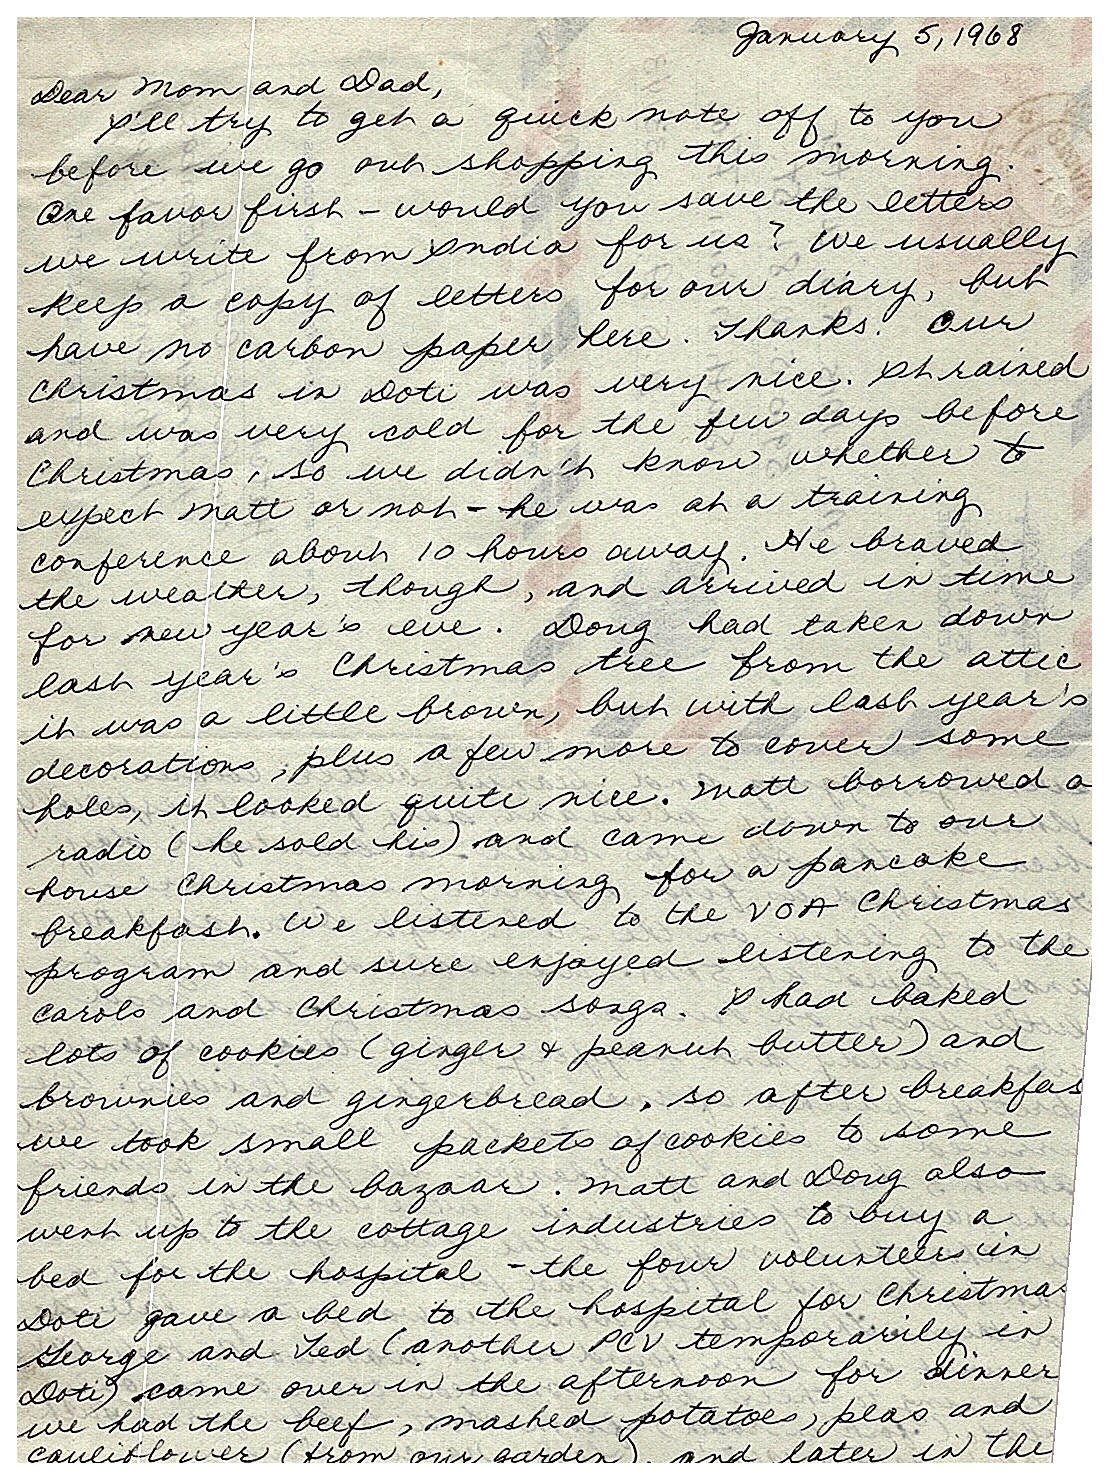 January 5, 1968
Dear Mom and Dad,
I'll try to get a quick note off to you
before we go out shopping this morning.
One favor first - would you save the letters
we write from India for us? We usually
keep a copy of letters for our diary, but
have no carbon paper here. Thanks! Our
Christmas in Doti was very nice. It rained
and was very cold for the few days before
Christmas, so we didn't know whether to
expect Matt or not - he was at a training
conference about 10 hours away. He braved
the weather, though, and arrived in time
for new year's eve. Doug had taken down
last year's Christmas tree from the attic
it was a little brown, but with last year's
decorations, plus a few more to cover some
holes, it looked quite nice. Matt borrowed a
radio (he sold his) and came down to our
house Christmas morning for a pancake
breakfast. We listened to the VOA Christmas
program and sure enjoyed listening to the
carols and Christmas songs. I had baked
lots of cookies (ginger & peanut butter) and
brownies and gingerbread, so after breakfas
we took small packets of cookies to some
friends in the bazaar. Matt and Doug also
went up to the cottage industries to buy a
bed for the hospital - the four volunteers in
Doti gave a bed to the hospital for Christmas
George and Ted (another PCV temporarily in
Doti) came over in the afternoon for dinner
we had the beef, mashed potatoes, peas and
cauliflower (from our garden), and later in the